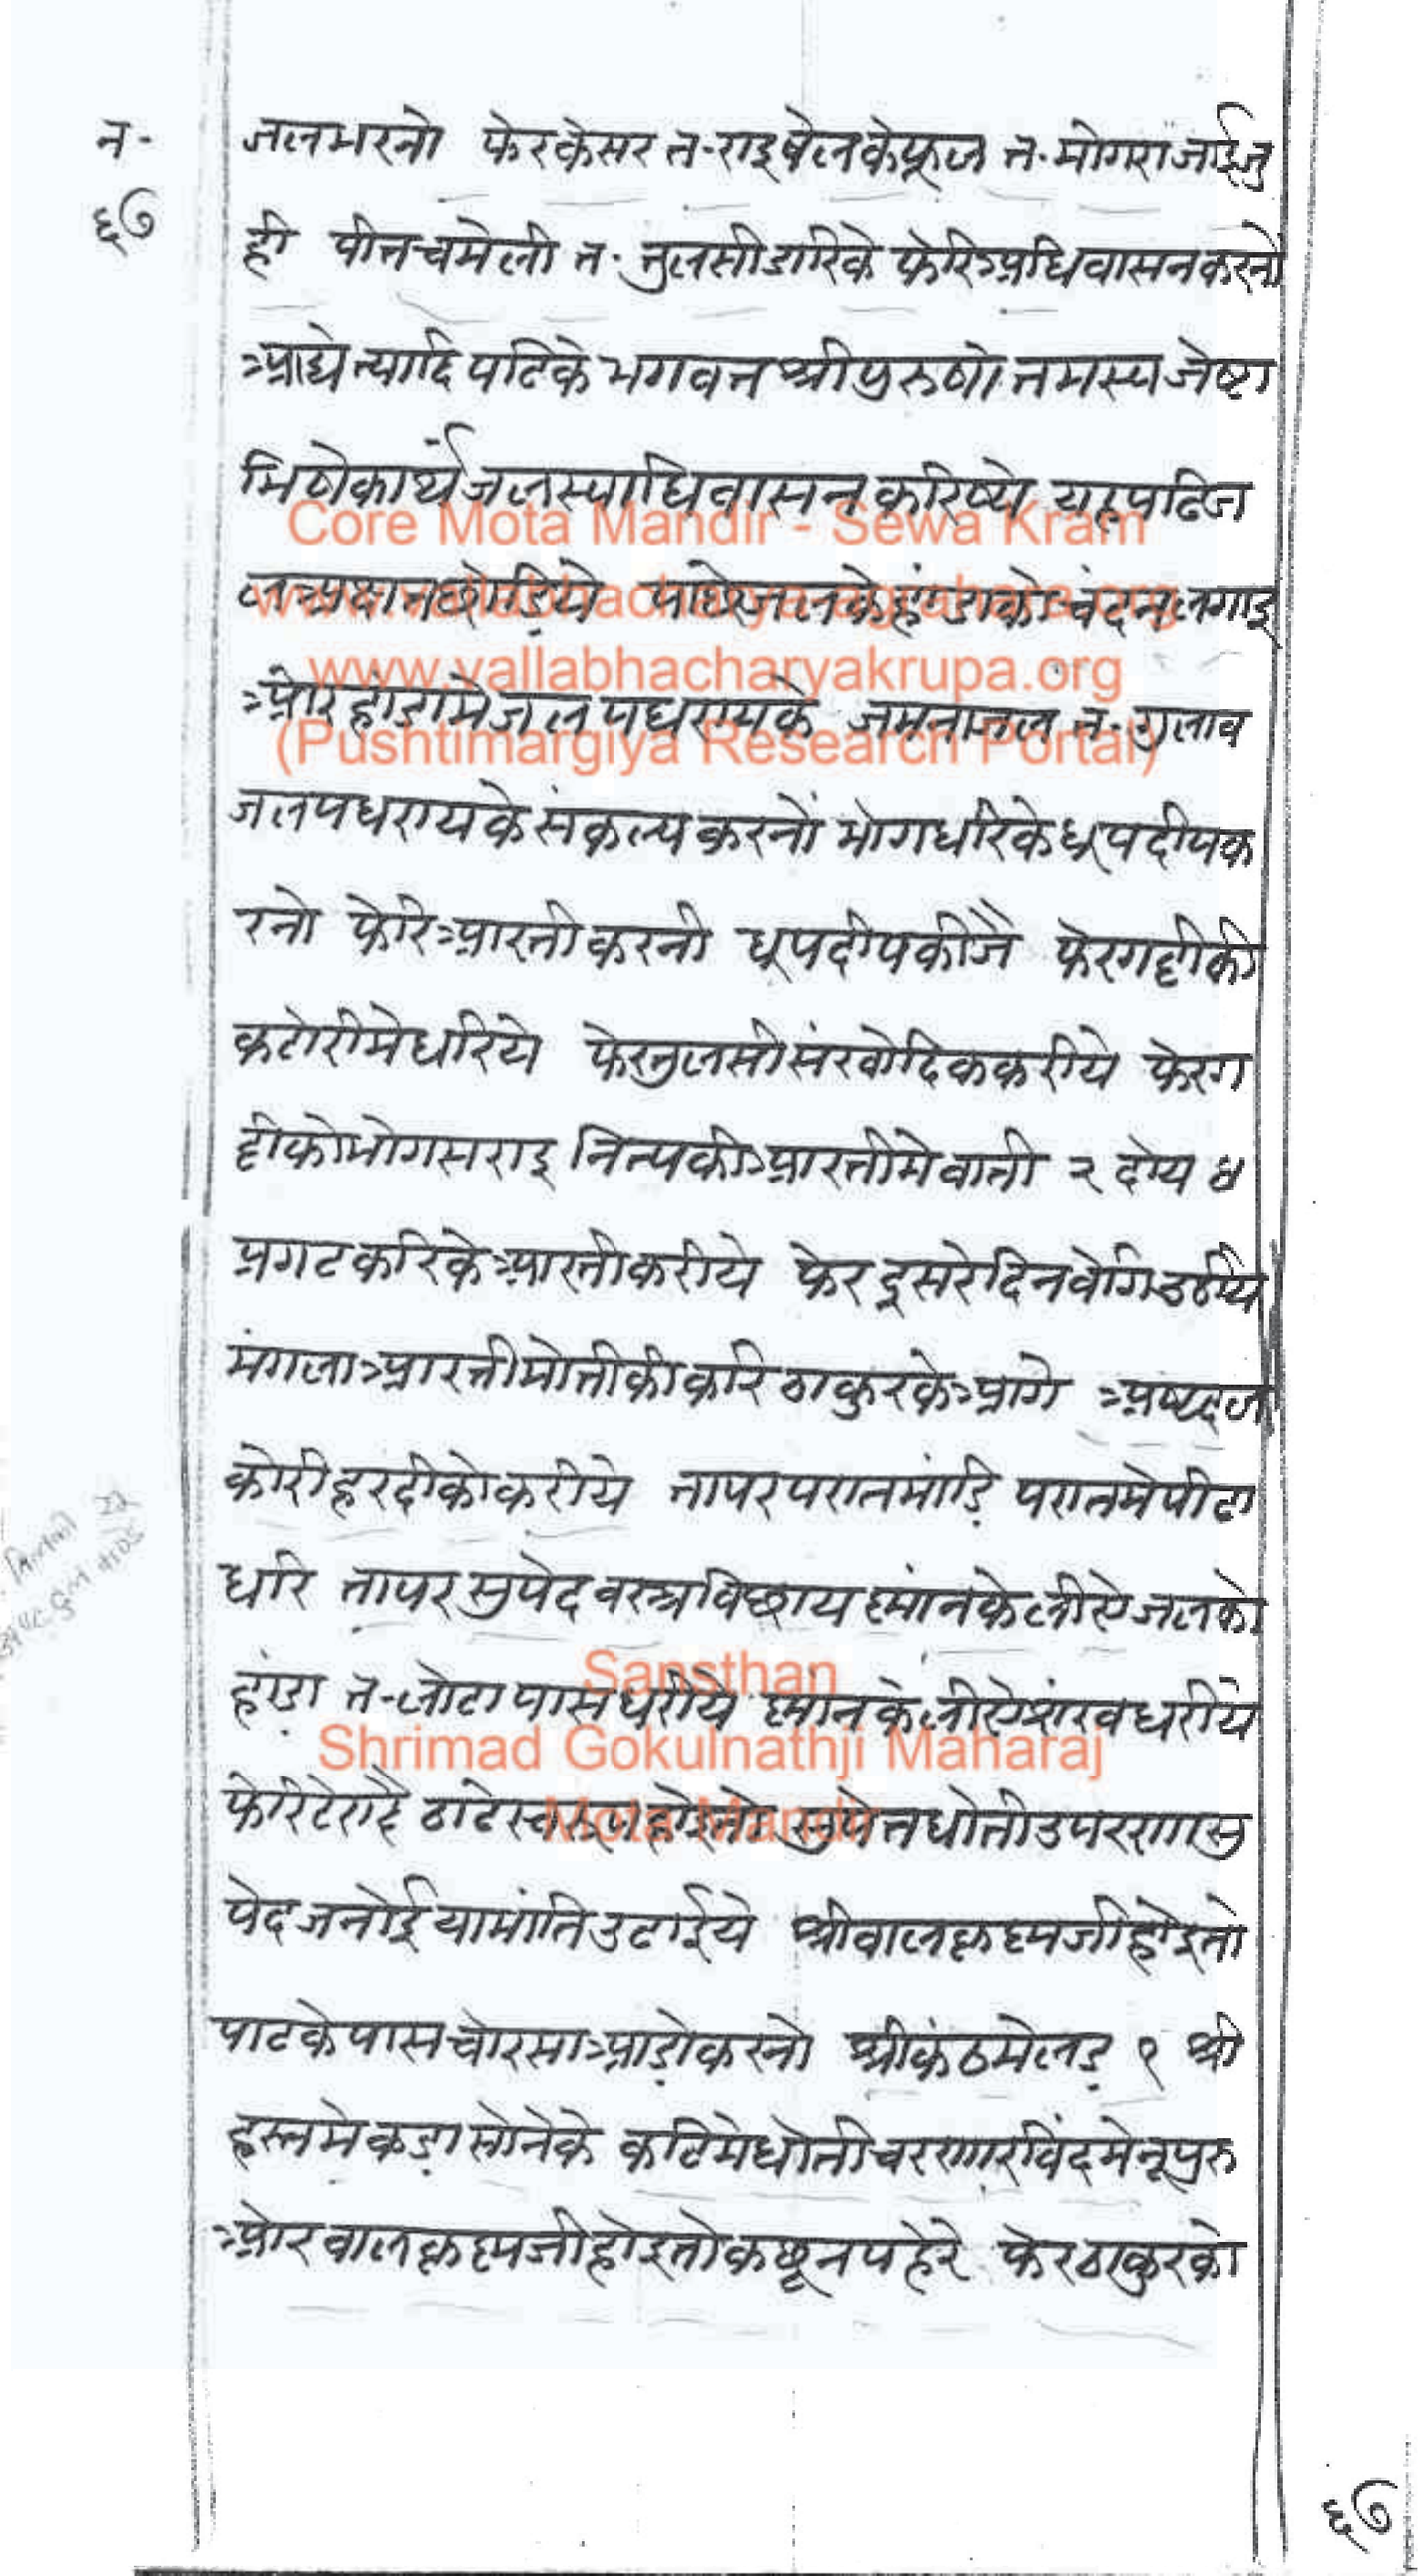 न॰
६७
जलभरनो फेरकेसर त॰राइबेलकेफूल त॰मोगराजाईजु
ही पीतचमेली त॰तुलसीडारिके फेरिअधिवासनकरनो
आद्येत्यादि पढिके भगवत श्रीपुरुषोत्तमस्य जेष्टा
भिषेकार्थं जलस्याधिवासन करिष्ये यहपढिज
लअक्षतछोडिये पाछेजलकेहांडाकोचंदनलगाइ
ओरहांडामेजलपधरायके जमनाजल त॰गुलाब
जलपधरायकेसंकल्पकरनों भोगधरिकेधूपदीपक
रनो फेरिआरतीकरनी धूपदीपकीजै फेरगद्दीकी
कटोरीमेधरिये फेरतुलसीसंखोदिककरीये फेरग
द्दीकोभोगसराइ नित्यकीआरतीमेबाती २ दोय
प्रगटकरिकेआरतीकरीये फेरदूसरेदिनवेगिउठीय
मंगलाआरतीमोतीकीकरि ठाकुरकेआगे अष्टदल
कोरीहरदीकोकरीये तापरपरातमांडि परातमेपीढा
धरि तापरसुपेदवस्त्रबिछाय स्नांनकेलीऐजलको
हांडा त॰लोटापासधरीये स्नांनकेलीऐशंखधरीये
फेरिटेरादै ठाढेस्वरूपहोइतो सुपेतधोतीउपररणासु
पेदजनोईयाभांतिउढाईये श्रीबालकृष्णजीहोइतो
पाटकेपासचोरसाआडोकरनो श्रीकंठमेलड १ श्री
हस्तमेकडासोनेके कटिमेधोतीचरणारविंदमेनूपुरु
ओरबालकृष्णजीहोइतोकछूनपहेरे फेरठाकुरको
६७
Core Mota Mandir - Sewa Kram
www.vallabhacharyakrupa.org
(Pushtimargiya Research Portal)
Sansthan
Shrimad Gokulnathji Maharaj
Mota Mandir